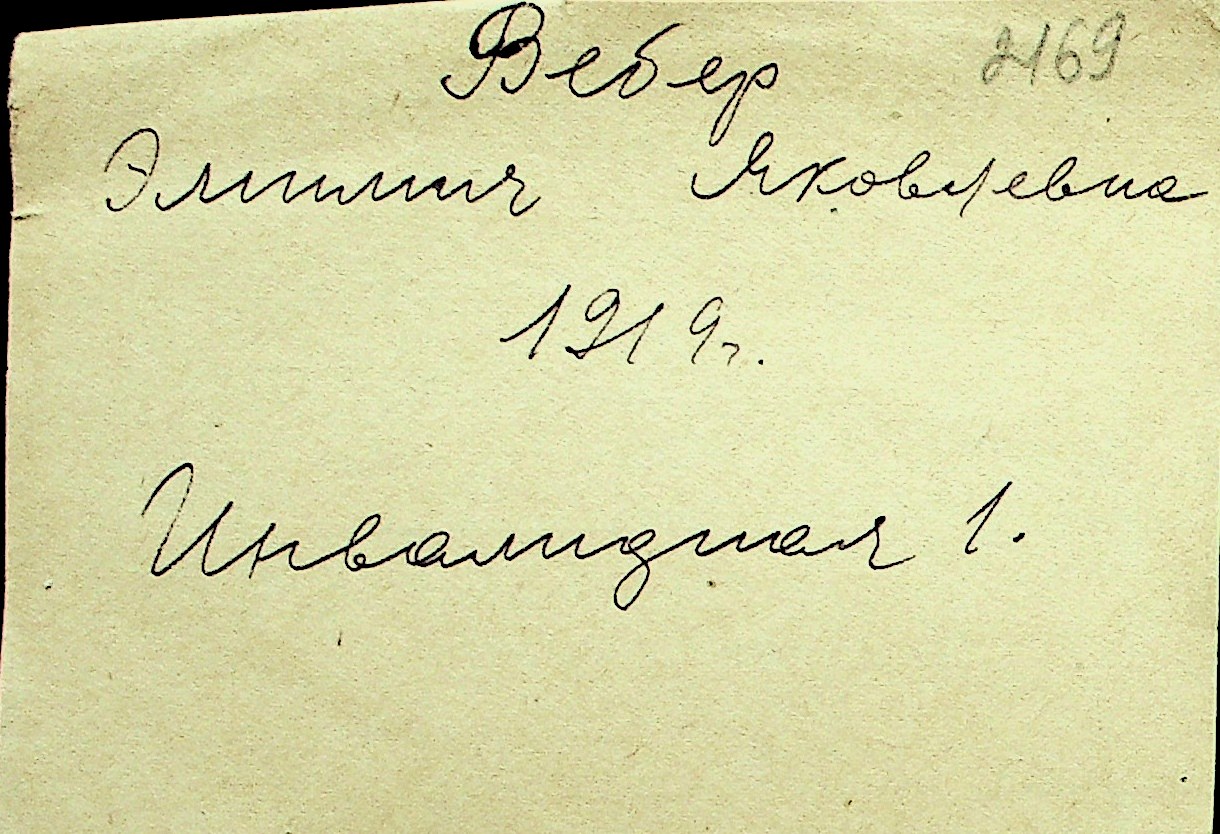 Вебер 2169
Эмилия Яковлевна
1919 г.
Инвалидная 1.